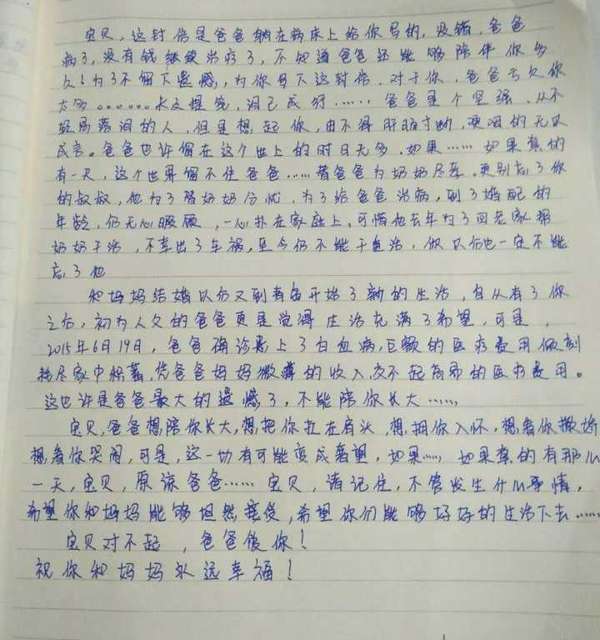 宝贝，这封信是爸爸躺在病床上给你写的，没错，爸爸
病了，没有钱继续治疗了，不知道爸爸还能够陪伴你多
久！为了不留下遗憾，为你写下这封信。对于你，爸爸亏欠你
太多………水之提笔，泪已成行……爸爸是个坚强、从不
轻易落泪的人，但是想起你，由不得肝肠寸断，哽咽的无以
成言。爸爸也许留在这个世上的时日无多，如果……如果真的
有一天，这个世界留不住爸爸……替爸爸为奶奶尽孝。更别忘了你
的叔叔，他为了替奶奶分忧，为了给爸爸治病，到了婚配的
年龄，仍无心顾及，一心扑在家庭上。可惜他去年为了回老家帮
奶奶干活，不幸出了车祸，至今仍不能干重活，你以后也一定不能
忘了他
和妈妈结婚以后又到青岛开始了新的生活，自从有了你
之后，初为人父的爸爸更是觉得生活充满了希望，可是，
2015年6月19日，爸爸确诊患上了白血病，巨额的医疗费用倾刻
耗尽家中积蓄，凭爸爸妈妈微薄的收入，交不起高昂的医疗费用。
这也许是爸爸最大的遗憾了，不能陪你长大……
宝贝，爸爸想陪你长大，想把你扛在肩头，想拥你入怀，想看你撒娇
想看你哭闹，可是，这一切有可能变成奢望，如果……如果真的有那么
一天，宝贝，原谅爸爸……宝贝，请记住，不管发生什么事情，
希望你和妈妈能够坦然接受，希望你们能够好好的生活下去……
宝贝对不起，爸爸爱你！
祝你和妈妈永远幸福！